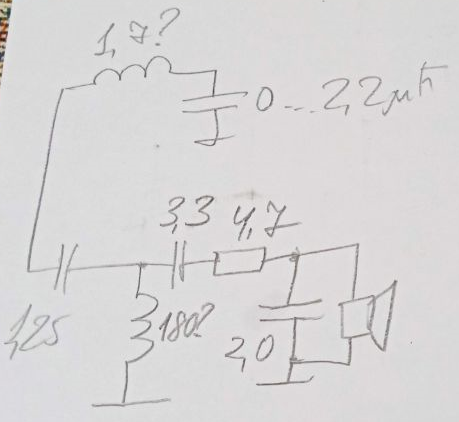 1,7?
0...2,2мкF
3,3 4,7
1,25
180?
2,0